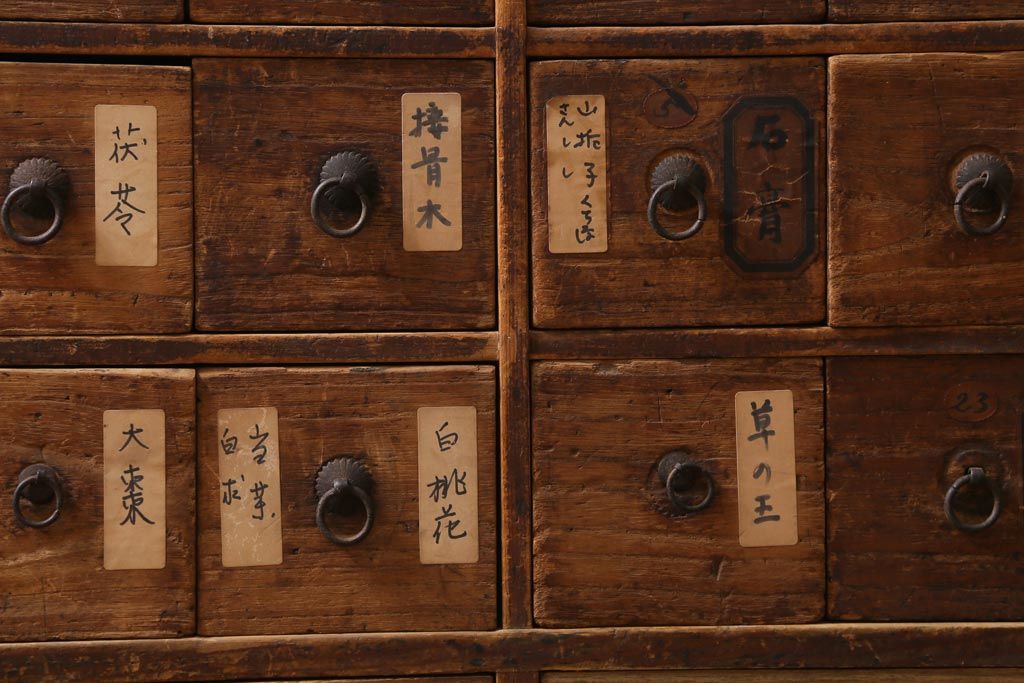 茯苓
接骨木
山梔子くちなし
さんしし
石膏
大棗
当
白求
白桃花
草の王
23